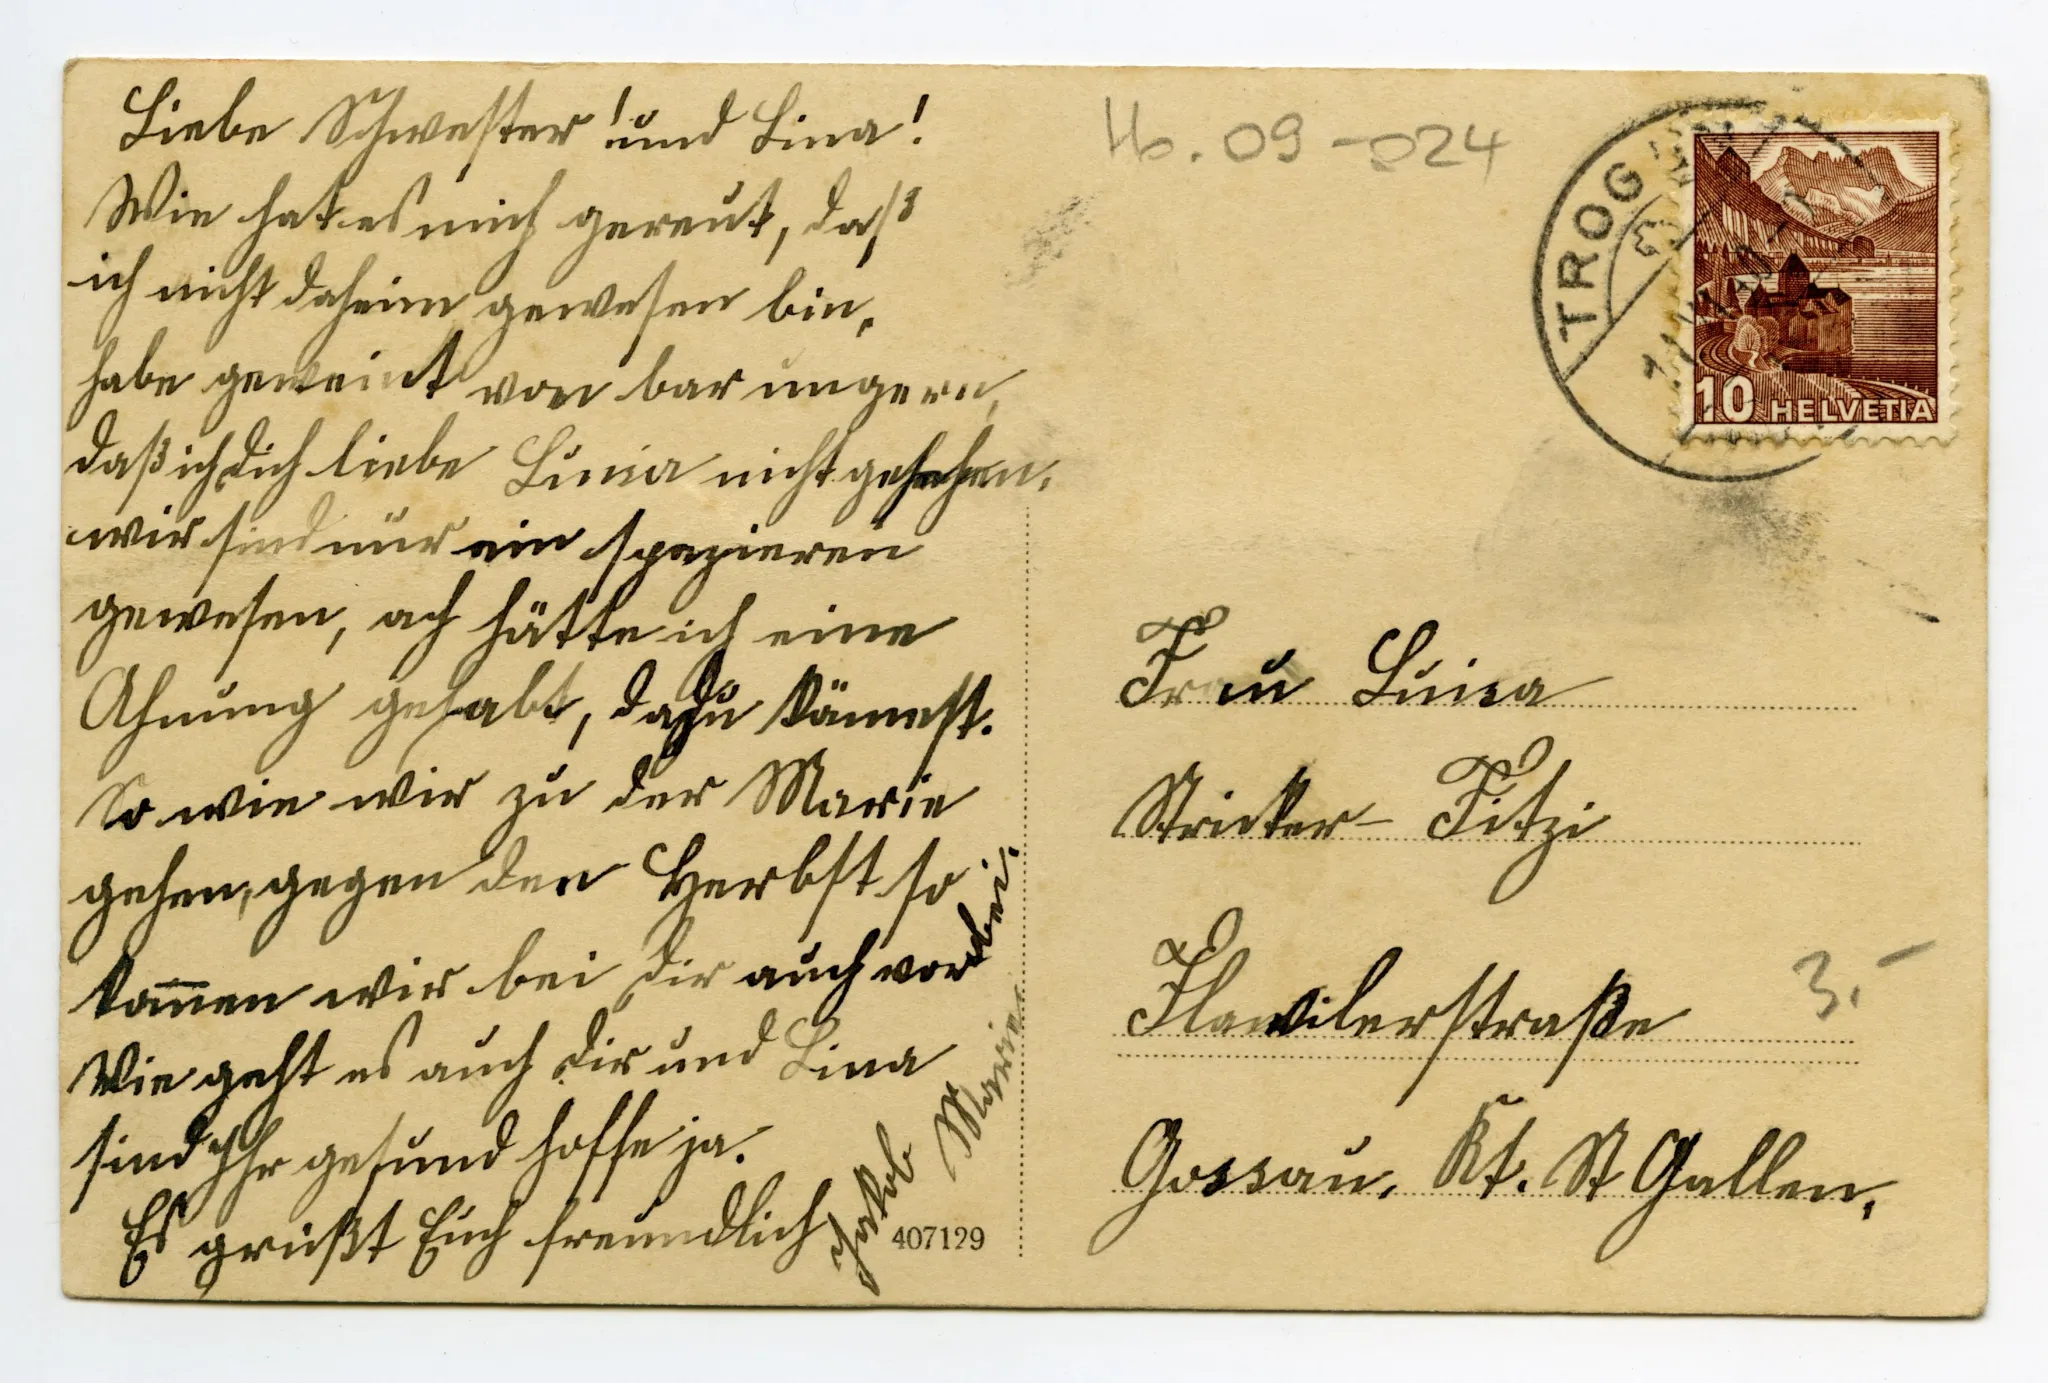 Liebe Schwester! und Lina!
Wie hat es mich gereut, daß
ich nicht daheim gewesen bin,
habe geweint von bar ungern,
daß ich Dich liebe Luisa nicht gesehen.
wir sind nur ein spazieren
gewesen, ach hätte ich eine
Ahnung gehabt, da Du kämest.
So wie wir zu der Marie
gehen, gegen den Herbst so
kom̅en wir bei Dir auch vorbei.
Wie geht es auch Dir und Lina
sind Ihr gesund hoffe ja.
Es grüßt Euch freundlich
Jakob Marie
407129
Hb. 09-024
TROG
10 HELVETIA
Frau Luisa
Stricker-Fitzi
Flawilerstraße
3.-
Gossau. Kt. St Gallen.